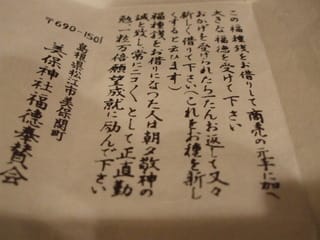 この福種銭をお借りして商売の元手に加へ
大きな福徳を受けて下さい
おかげを受けられたら一たんお返しして又々
新しく借りて下さい(これをお種を新し
くすると云ひます)
福種銭をお借りになった人は朝夕敬神の
誠を致し常にニコ〱として正直勤
勉一粒万倍願望成就に励んで下さい
〒690-1501
島根県松江市美保関町
美保神社福徳奉賛会